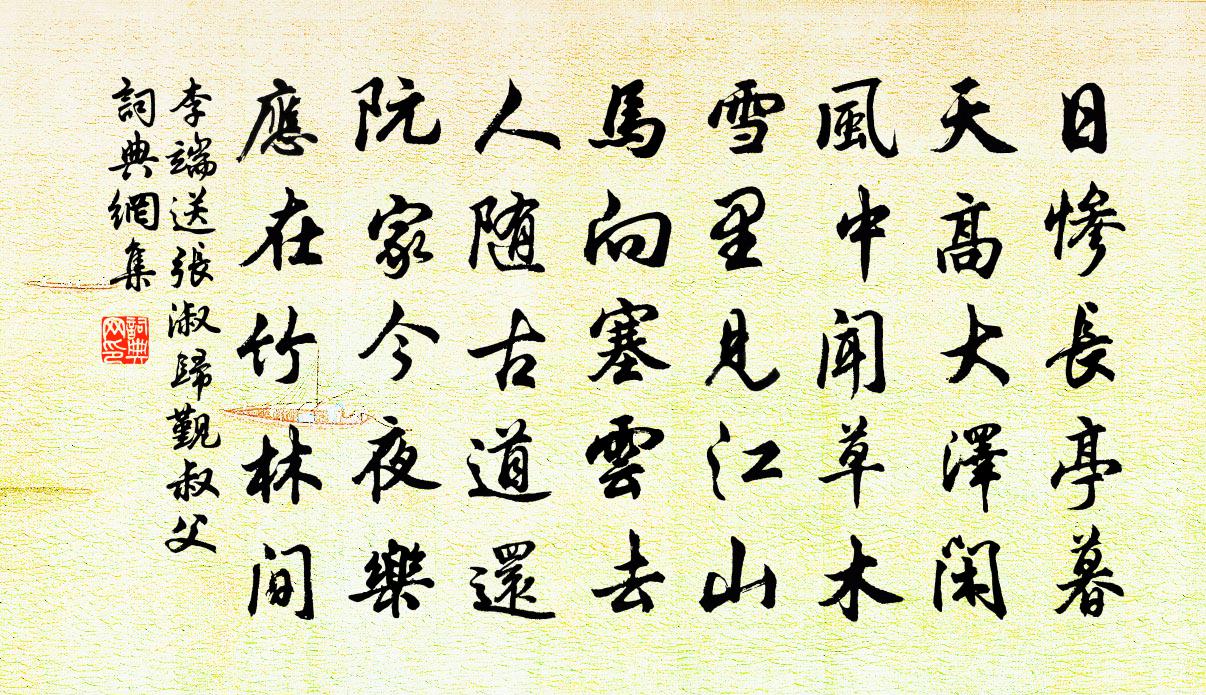 日慘長亭暮
天高大澤閑
風中聞草木
雪里見江山
馬向塞雲去
人随古道還
阮家今夜樂
應在竹林間
李端送張淑歸觐叔父
詞典網集
詞典网印